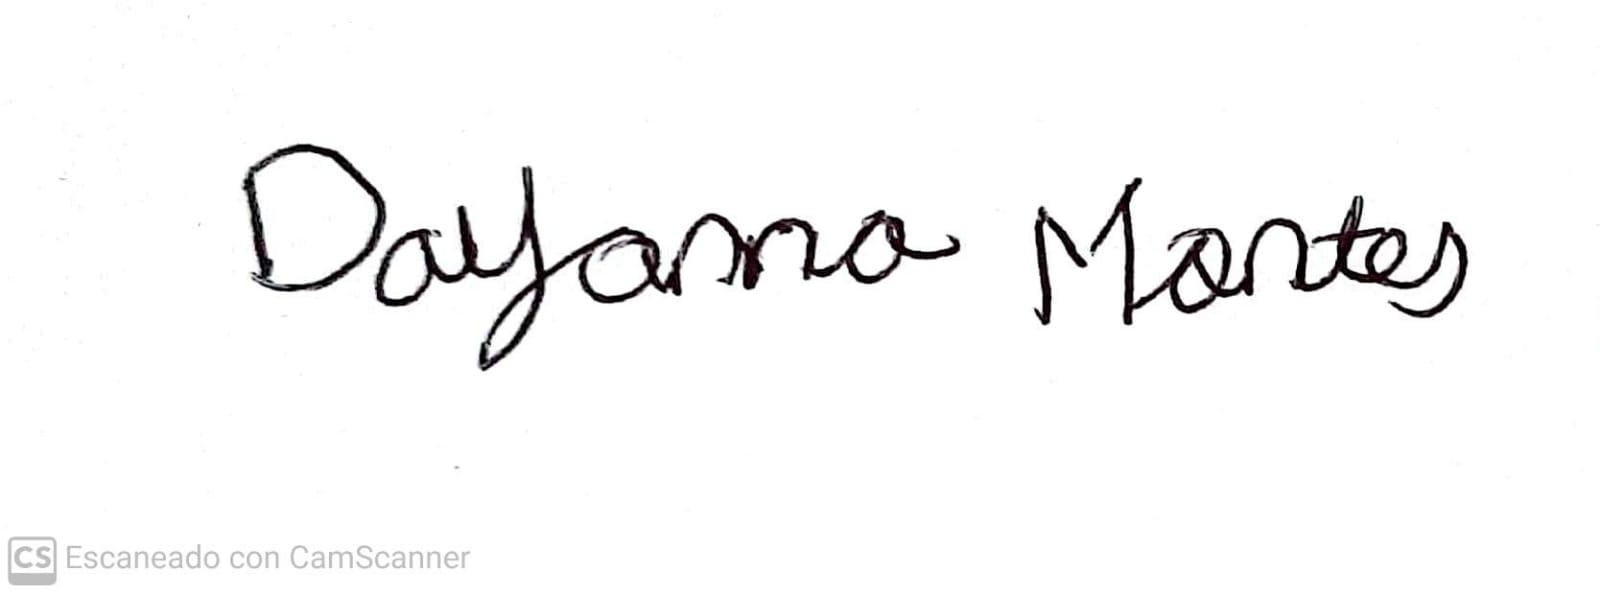 Dayanna Montes
CS Escaneado con CamScanner